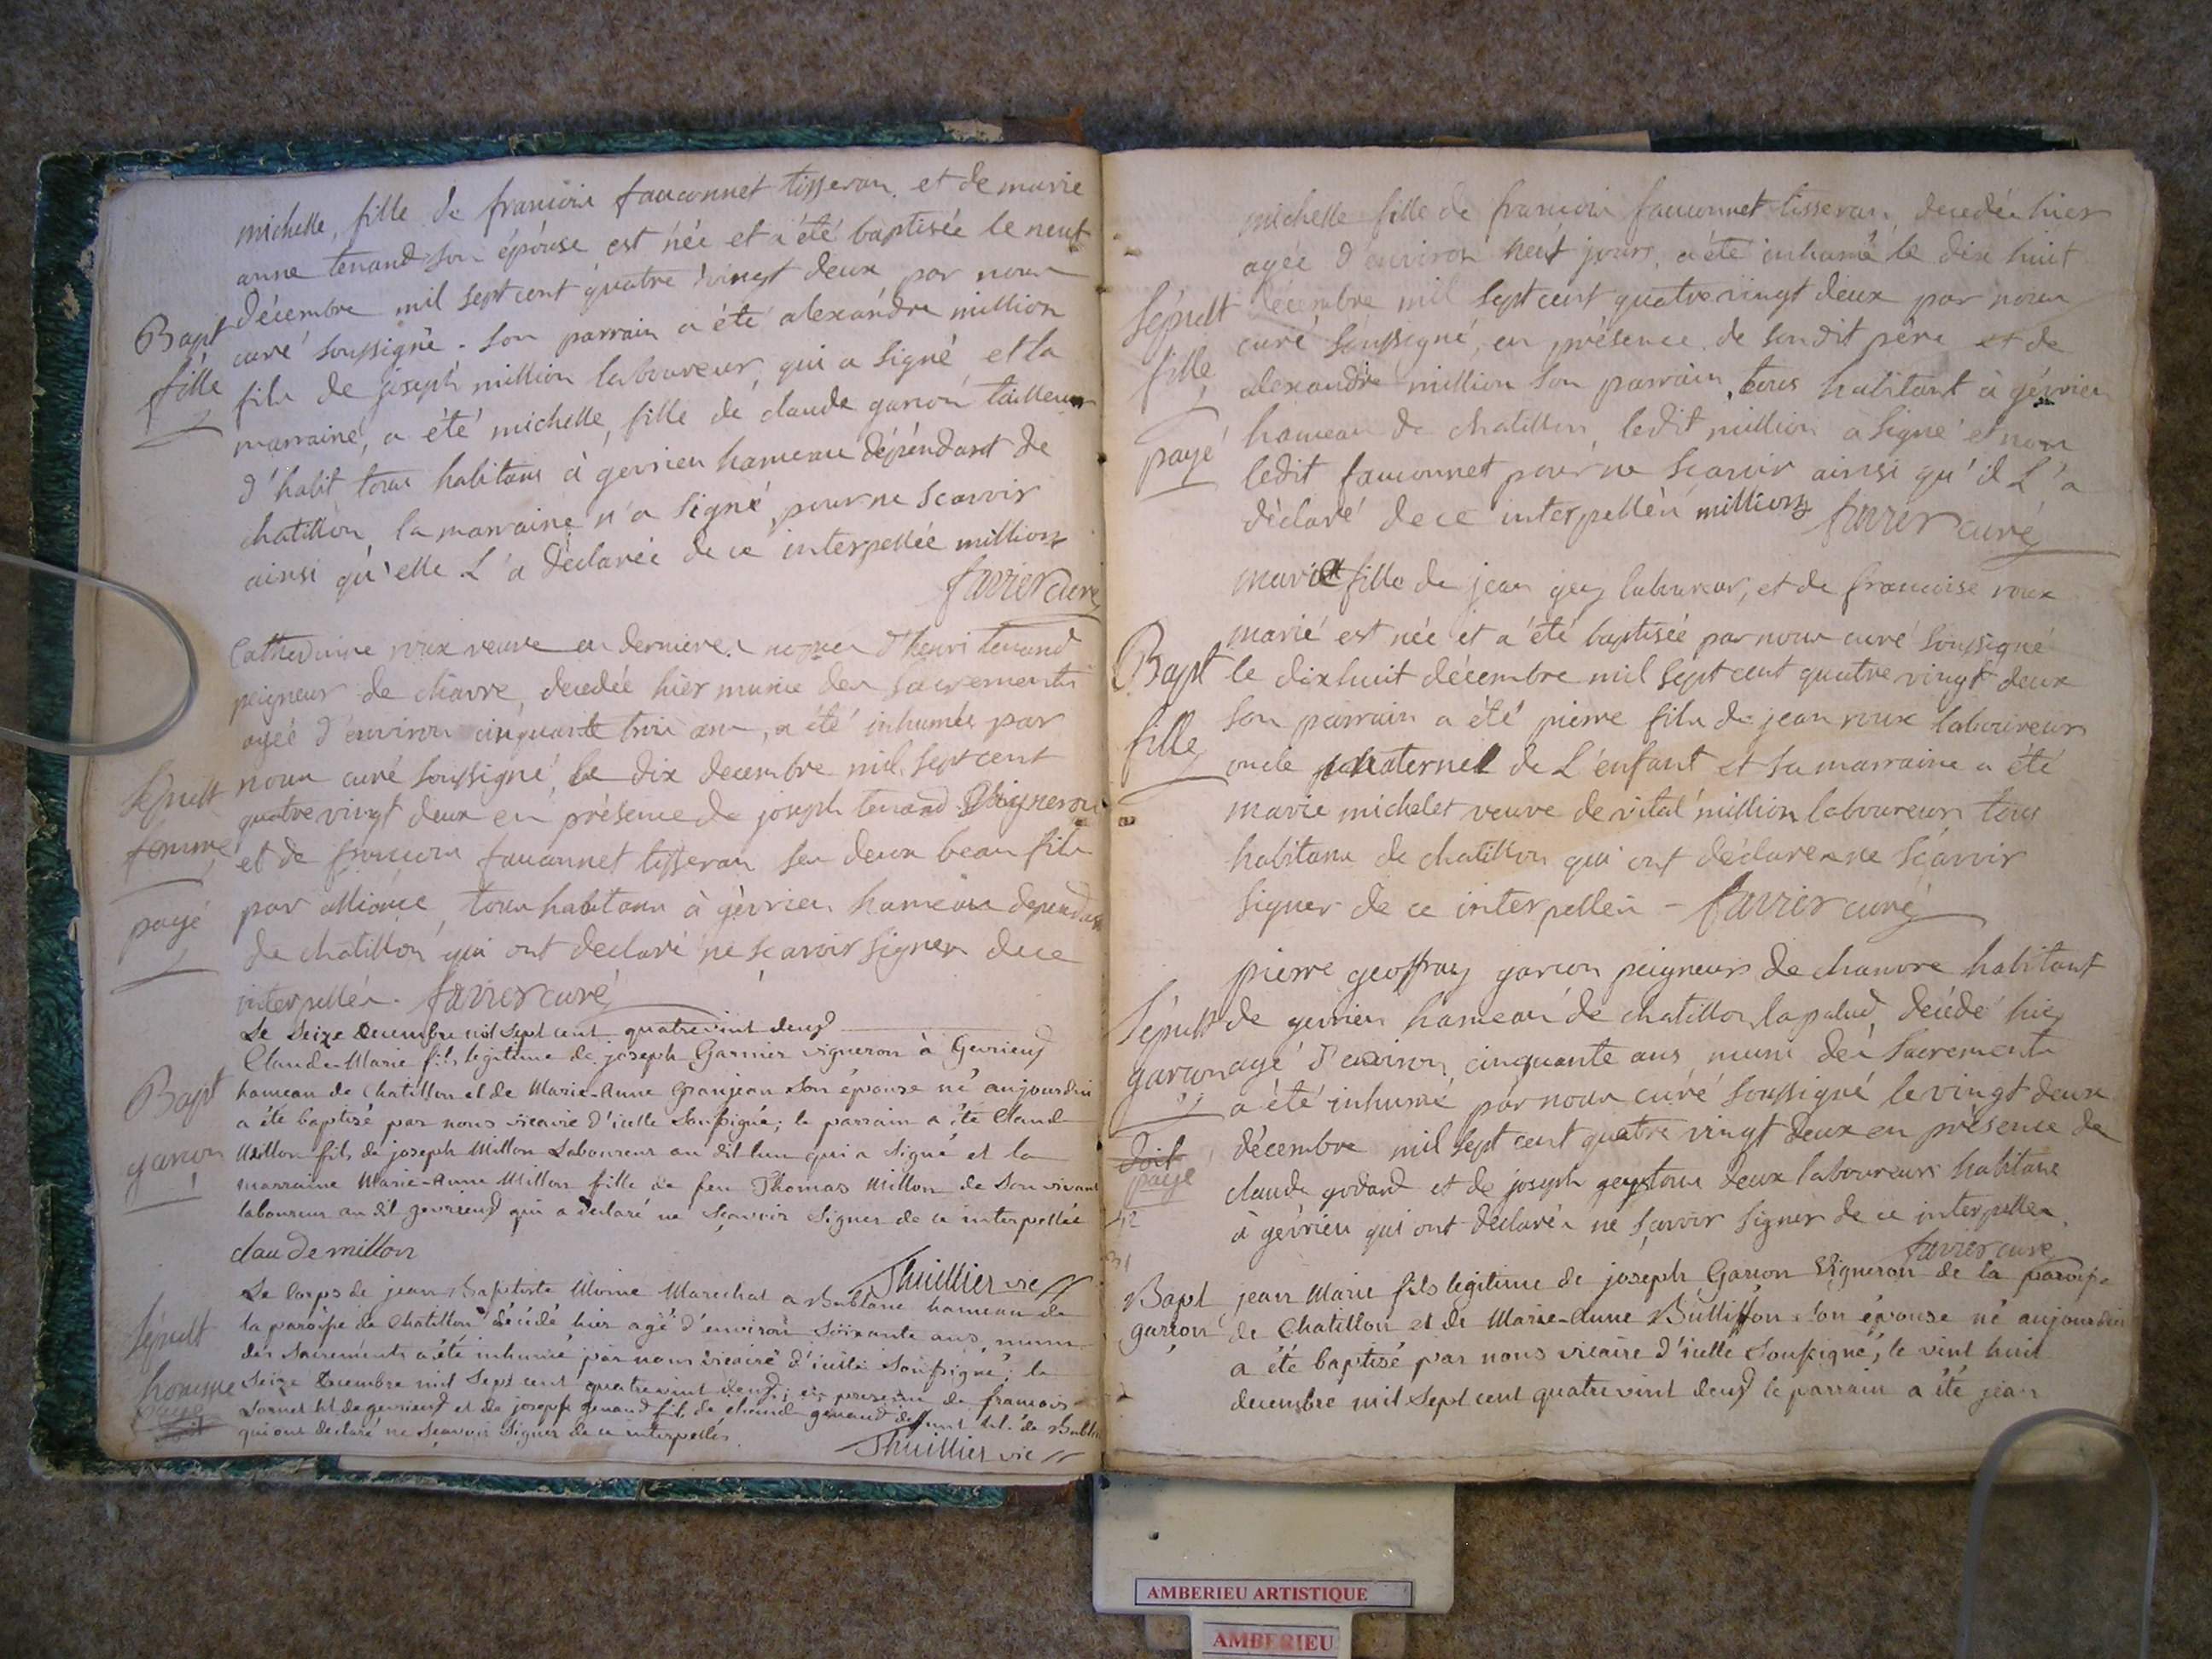 michelle, fille de francois fauconnet tisseran et de marie
anne tenand son épouse est née et a été baptisée le neuf
décembre mil sept cent quatre vingt deux par nous
Bapt
fille
curé soussigné. son parrain a été alexandre million
fils de joseph million laboureur, qui a signé, et la
marraine, a été michelle, fille de claude garion tailleur
d'habit tous habitans à gevrieu hameau dépendant de
chatillon, la marraine n'a signé, pour ne scavoir
ainsi qu'elle L'a déclarée de ce interpellée million
favier curé
Catherinne roux veuve en derniere noces d'henri tenand
peigneur de chavre, decedée hier munie des sacrements
agée d'environ cinquante trois ans, a été inhumée par
nous curé soussigné, le dix decembre mil sept cent
Sepult
femme
payé
quatre vingt deux en présence de joseph tenand Vigneron
et de francois fauconnet tisseran ses deux beau fils
par alliance, tous habitans à gèvrieu hameau dependant
de chatillon qui ont declaré ne scavoir signer de ce
interpellés. favier curé
Le Seize Decembre mil Sept cent quatrevint deux
Claude-Marie fils legitime de joseph Garnier vigneron à Gevrieux
Bapt
garcon
hameau de Chatillon et de Marie-Anne Granjean son épouse né aujourdui
a éte baptisé par nous vicaire d'icelle Soussigné; le parrain a éte Claude
Millon fils de joseph Millon Laboureur au dit lieu qui a Signé et la
marraine Marie-Anne Millon fille de feu Thomas Millon de Son vivant
laboureur au dit gevrieux qui a declaré ne Sçavoir Signer de ce interpellée
claude millon
Thuillier vic
Le Corps de jean-Baptiste Moine Marechal a Bublane hameau de
Sépult
homme
payé
la paroisse de Chatillon décédé hier agé d'environ Soixante ans, muni
des Sacrements a été inhumé par nous vicaire d'icelle Soussigné; le
Seize Decembre mil Sept cent quatrevint deux; en presence de francois
de gevrieux et de joseph genaud fils de claude genaud deffunt
qui ont declaré ne Sçavoir Signer de ce interpellés
Thuillier vic
michelle fille de francois fauconnet tisseran, decedée hier
agée d'environ neuf jours, a été inhumé le dix huit
Sépult
fille
payé
décembre mil sept cent quatre vingt deux par nous
curé soussigné, en présence de sondit père et de
alexandre million son parrain, tous habitant à gévrieu
hameau de chatillon, ledit million a signé et non
ledit fauconnet pour ne scavoir ainsi qu'il L'a
déclaré de ce interpellés million favier curé
marie fille de jean gey laboureur, et de francoise roux
marié est née et a été baptisée par nous curé soussigné
Bapt
fille
le dixhuit décembre mil sept cent quatre vingt deux
son parrain a été pierre fils de jean roux laboureur
oncle maternel de L'enfant et sa marraine a été
marie michelet veuve de vital million laboureur tous
habitans de chatillon qui ont déclarés ne scavoir
signer de ce interpellés - favier curé
pierre geoffray garcon peigneur de chanvre habitant
Sépult
garcon
doit
payé
de gevrieu hameau de chatillon lapalud, décédé hier
agé d'environ cinquante ans, muni des sacrements
a été inhumé par nous curé soussigné le vingt deux
décembre mil sept cent quatre vingt deux en présence de
claude godard et de joseph gey tous deux laboureurs habitans
à gévrieu qui ont déclarés ne sçavoir signer de ce interpellés.
favier curé
Bapt
garcon
jean Marie fils legitime de joseph Garion Vigneron de la paroisse
de Chatillon et de Marie-Anne Bulliffon son épouse né aujourdui
a été baptisé par nous vicaire d'icelle Soussigné; le vint huit
decembre mil Sept cent quatrevint deux le parrain a été jean
AMBERIEU ARTISTIQUE
AMBERIEU